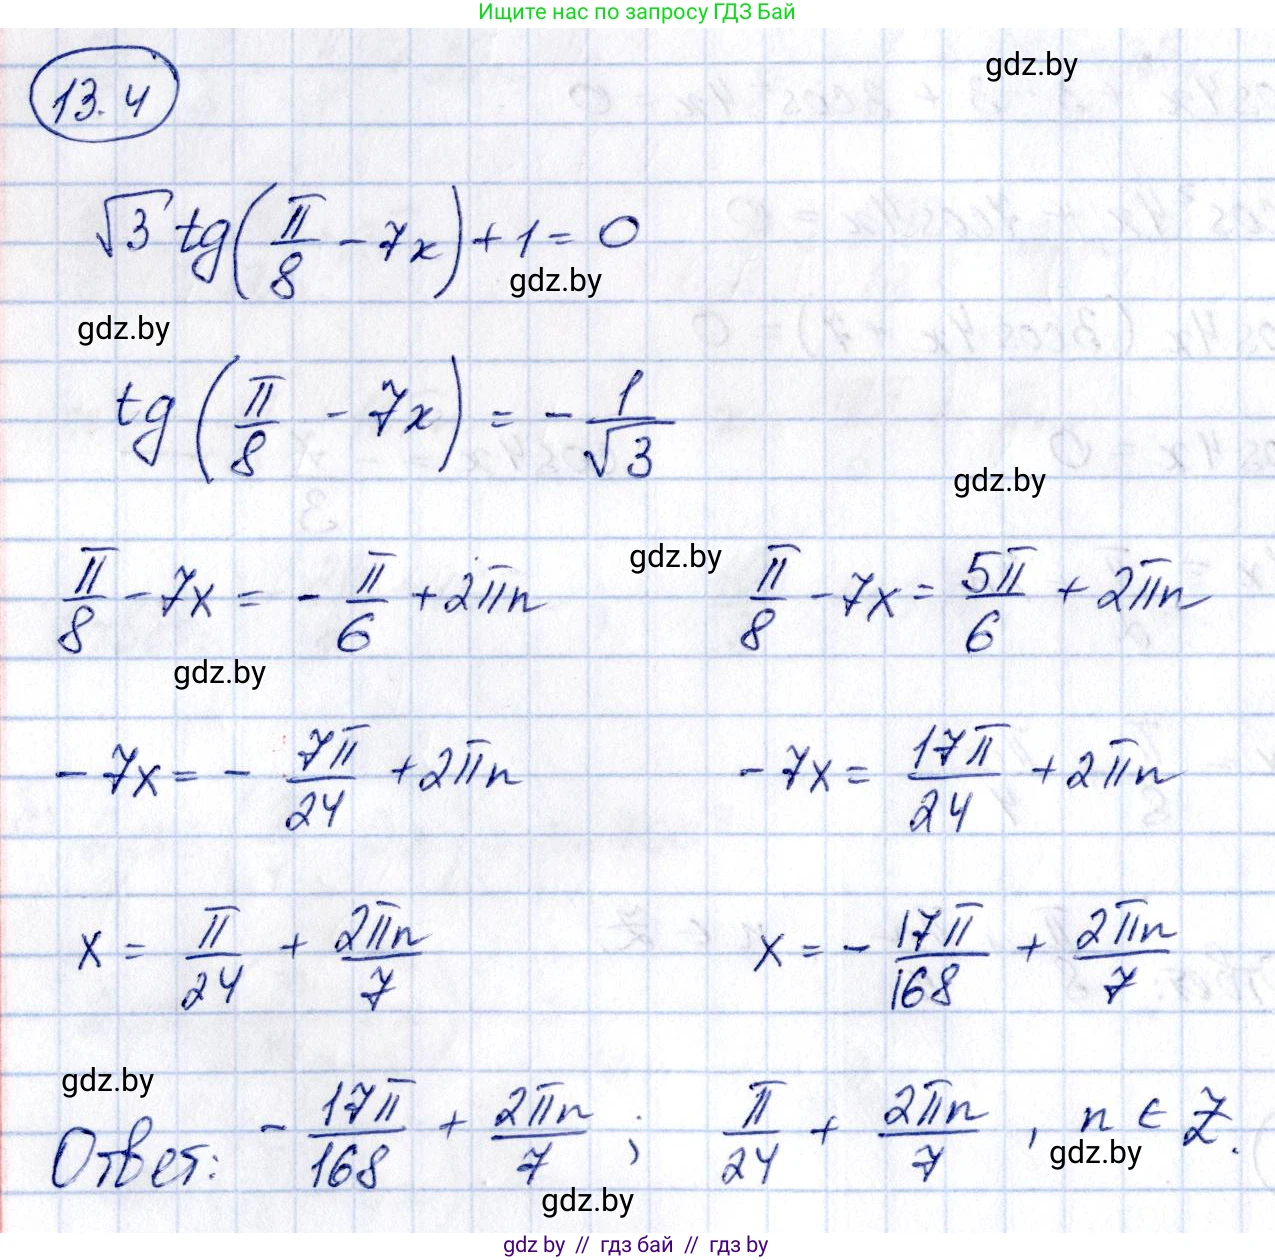 Ищите нас по запросу ГДЗ Бай
gdz.by
13.4
√3 tg(π/8 - 7x) + 1 = 0
gdz.by
gdz.by
tg(π/8 - 7x) = - 1/√3
gdz.by
gdz.by
π/8 - 7x = - π/6 + 2πn    π/8 - 7x = 5π/6 + 2πn
gdz.by
- 7x = - 7π/24 + 2πn    - 7x = 17π/24 + 2πn
x = π/24 + 2πn/7    x = - 17π/168 + 2πn/7
gdz.by
Ответ: - 17π/168 + 2πn/7 ; π/24 + 2πn/7 , n ∈ Z.
gdz.by
gdz.by
gdz by // гдз бай // гдз by